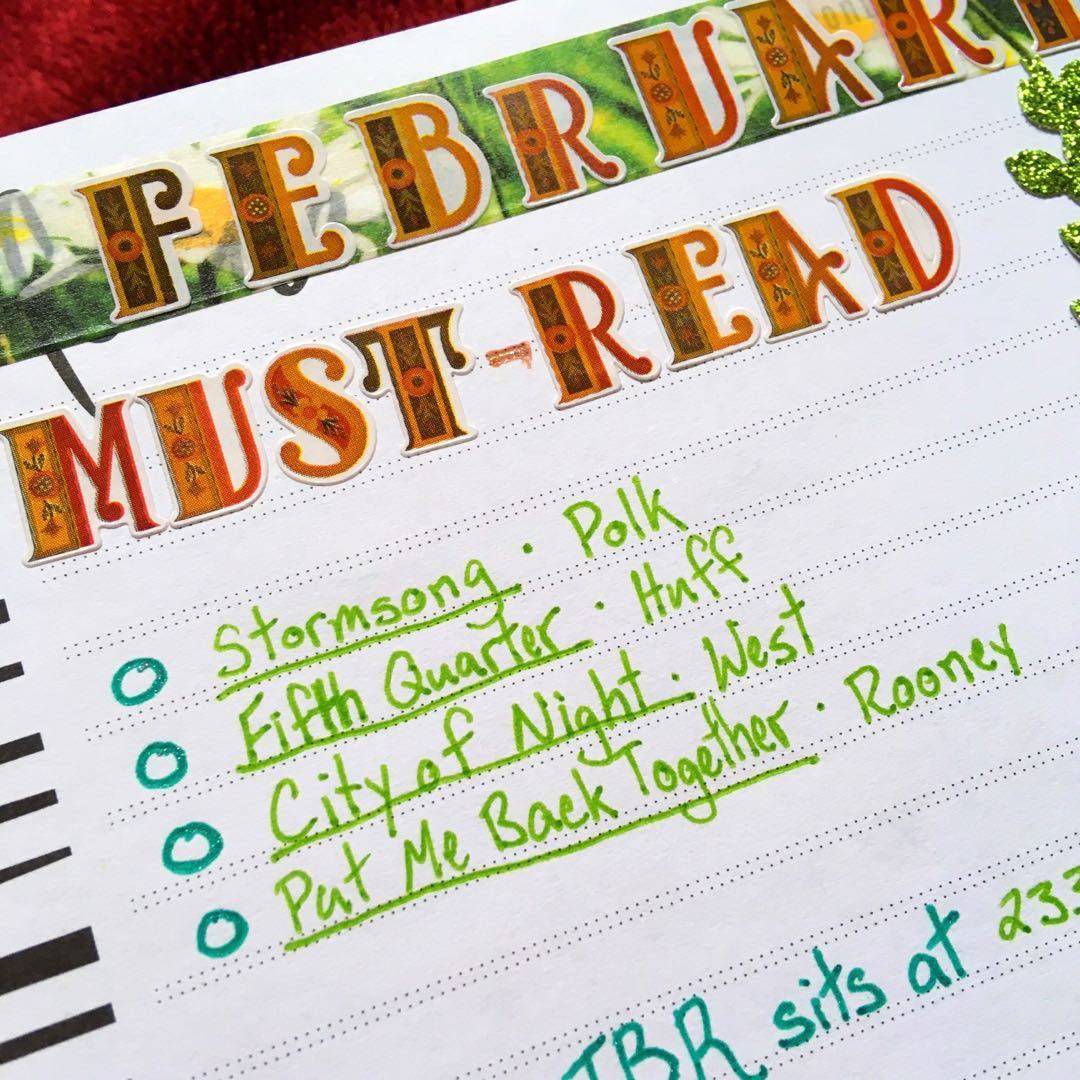 FEBRUARY
MUST-READ
Stormsong · Polk
Fifth Quarter · Huff
City of Night · West
Put Me Back Together · Rooney
TBR sits at 233